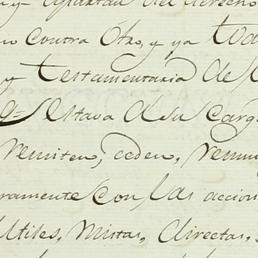 y apartan del derecho
no contra Otro, y ya toda
y testamentaria de
qe estava á su Carg
remiten, ceden, renun
ramente con las accion
Utiles, Mistas, directas,